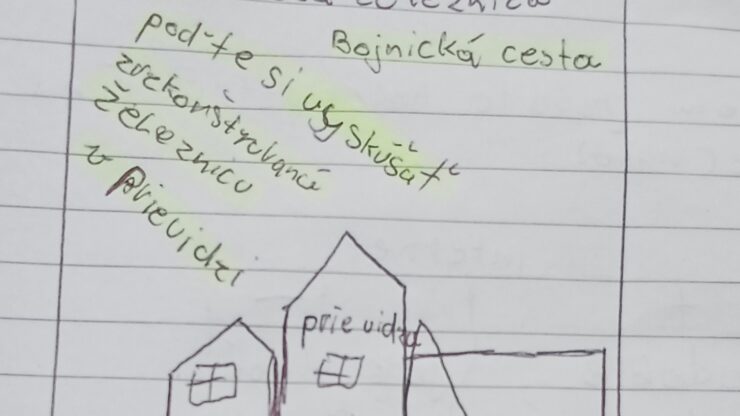 Bojnická cesta
poďte si vyskúšať
zrekonštruovanú
železnicu
v prievidzi
prievidza